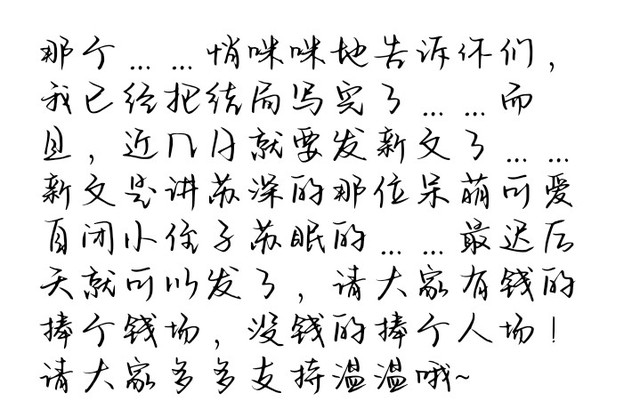 那个……悄咪咪地告诉你们，
我已经把结局写完了……而
且，近几日就要发新文了……
新文是讲苏深的那位呆萌可爱
自闭小侄子苏眠的……最迟后
天就可以发了，请大家有钱的
捧个钱场，没钱的捧个人场！
请大家多多支持温温哦~